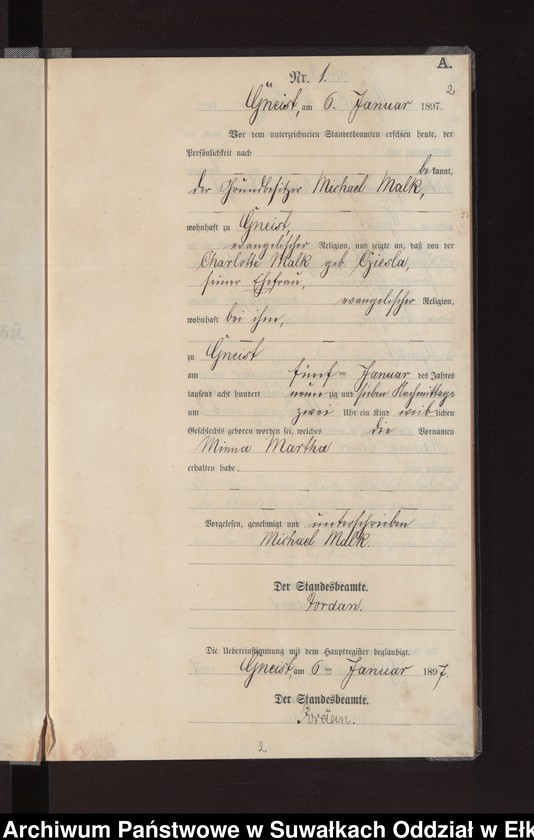 A.
Nr. 1.
2
Gneist, am 6. Januar 1897.
Vor dem unterzeichneten Standesbeamten erschien heute, der
Persönlichkeit nach
bekannt,
der Grundbesitzer Michael Malk,
wohnhaft zu Gneist,
evangelischer Religion, und zeigte an, daß von der
Charlotte Malk geb. Cziesla,
seiner Ehefrau,
evangelischer Religion,
wohnhaft bei ihm,
zu Gneist
am fünften Januar des Jahres
tausend acht hundert neunzig und sieben Nachmittags
um zwei Uhr ein Kind weiblichen
Geschlechts geboren worden sei, welches die Vornamen
Minna Martha
erhalten habe.
Vorgelesen, genehmigt und unterschrieben
Michael Malk.
Der Standesbeamte.
Jordan.
Die Uebereinstimmung mit dem Hauptregister beglaubigt.
Gneist, am 6ten Januar 1897.
Der Standesbeamte.
Jordan.
2
Archiwum Państwowe w Suwałkach Oddział w Ełk